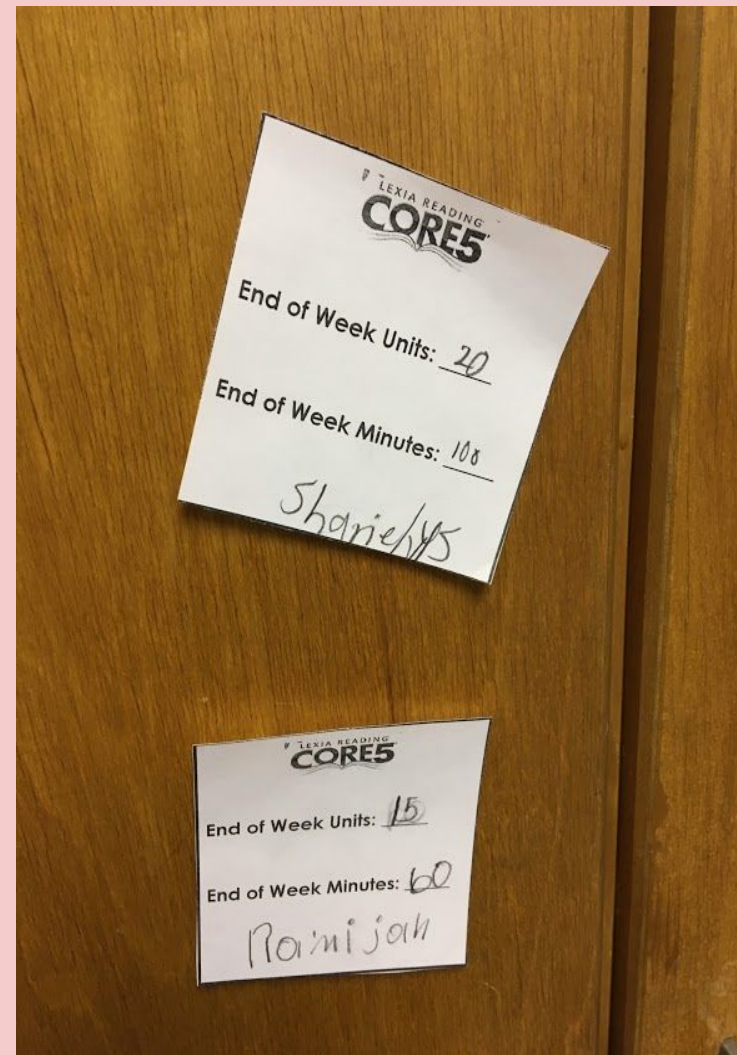 LEXIA READING
CORE5
End of Week Units: 20
End of Week Minutes: 100
LEXIA READING
CORE5
End of Week Units: 15
End of Week Minutes: 60
Ramijah